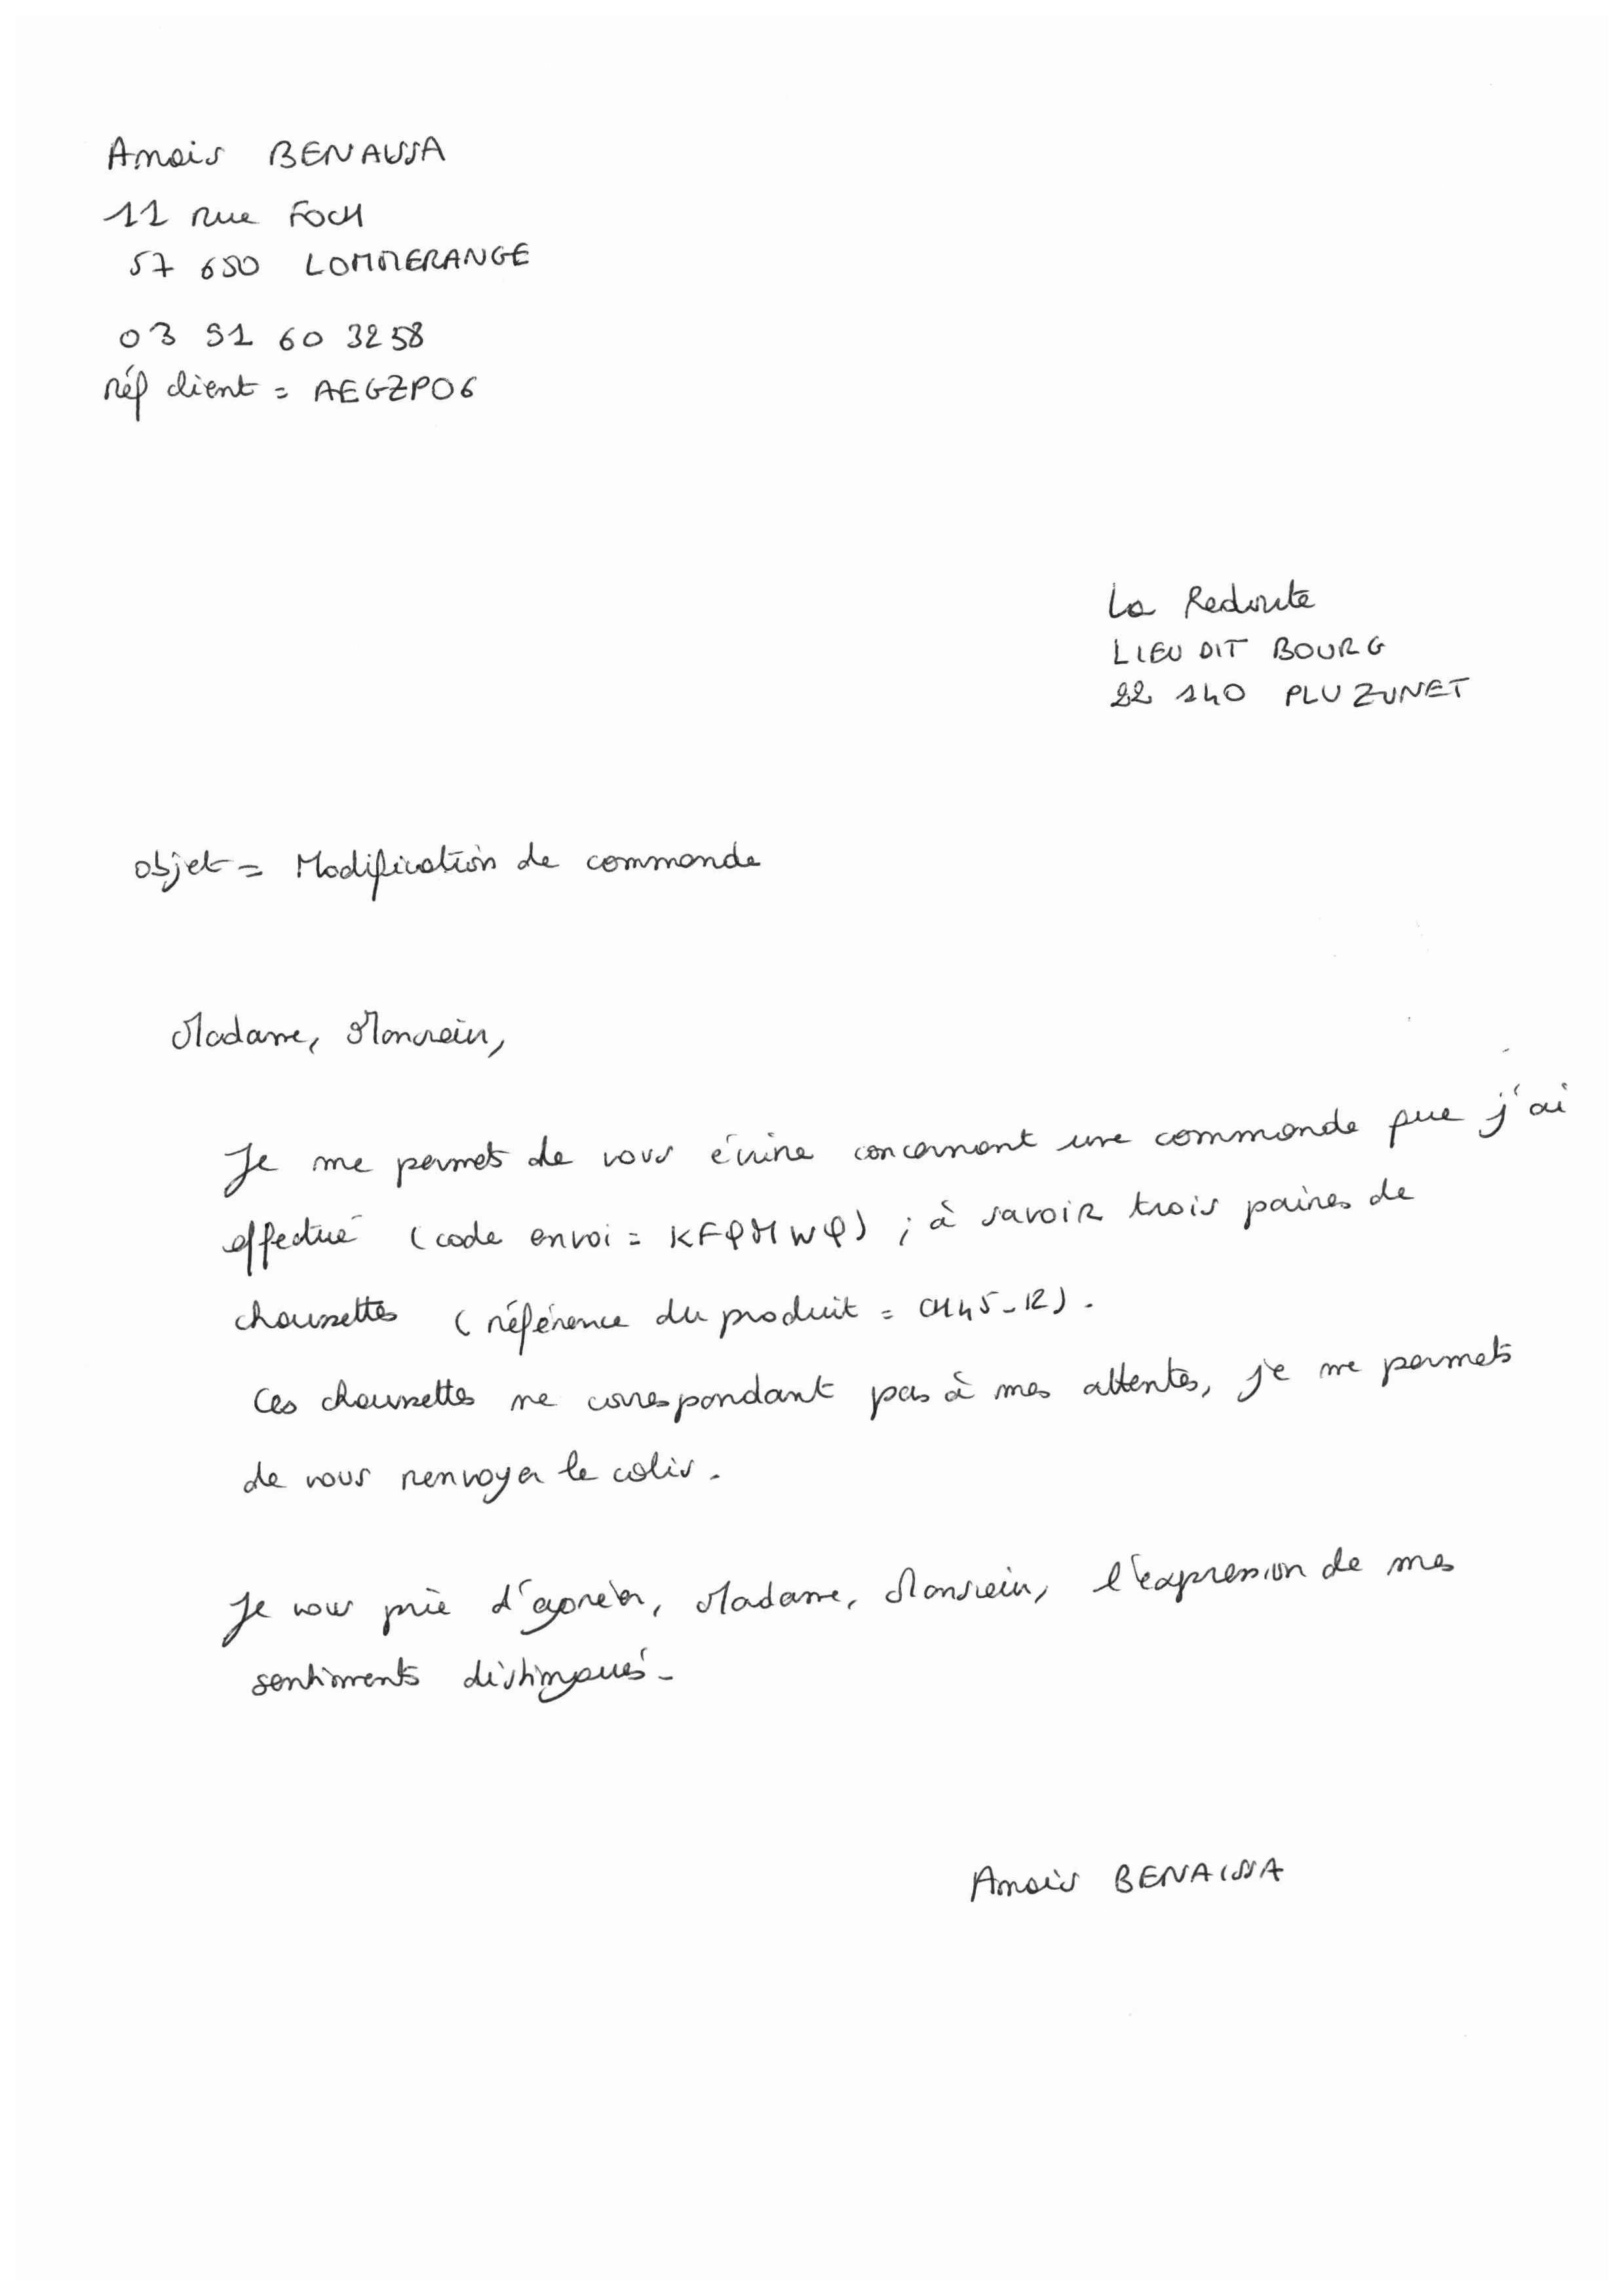 Anais BENAISSA
11 rue FOCH
57 650 LOMMERANGE
03 91 60 32 58
réf client = AEGZP06
La Redoute
LIEU DIT BOURG
22 140 PLUZUNET
objet = Modification de commande
Madame, Monsieur,
Je me permets de vous écrire concernant une commande que j'ai
effectué (code envoi = KFQMWQ) ; à savoir trois paires de
chaussettes (référence du produit = CH45-12).
Ces chaussettes ne correspondant pas à mes attentes, je me permets
de vous renvoyer le colis.
Je vous prie d'agréer, Madame, Monsieur, l'expression de mes
sentiments distingués.
Anais BENAISSA